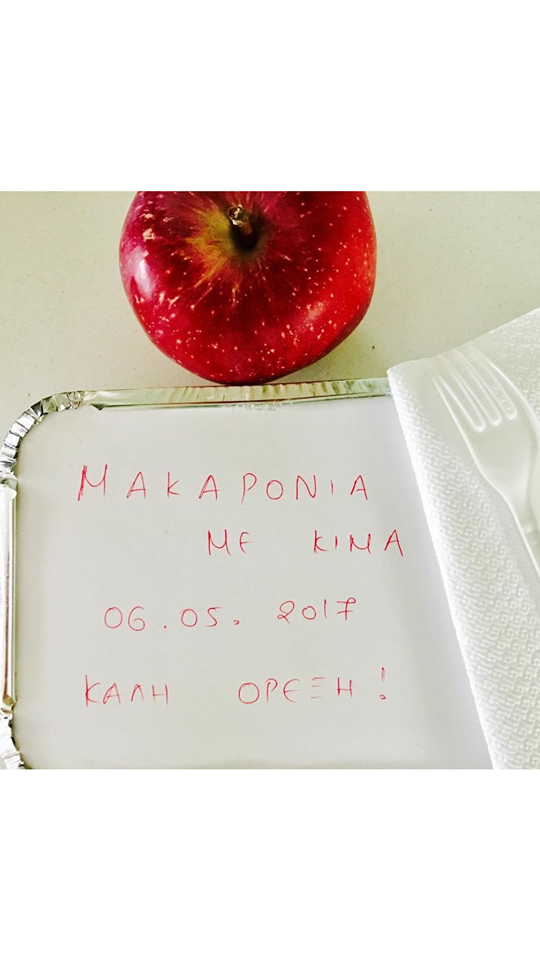 ΜΑΚΑΡΟΝΙΑ
ΜΕ ΚΙΜΑ
06.05.2017
ΚΑΛΗ ΟΡΕΞΗ!